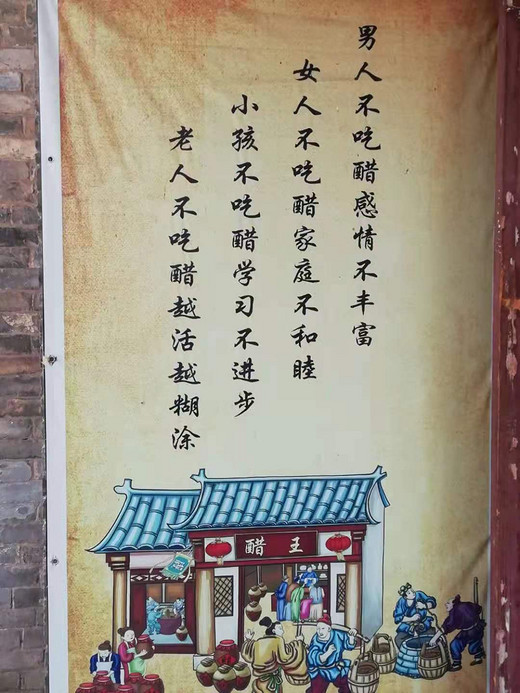 男人不吃醋感情不丰富
女人不吃醋家庭不和睦
小孩不吃醋学习不进步
老人不吃醋越活越糊涂
醋王